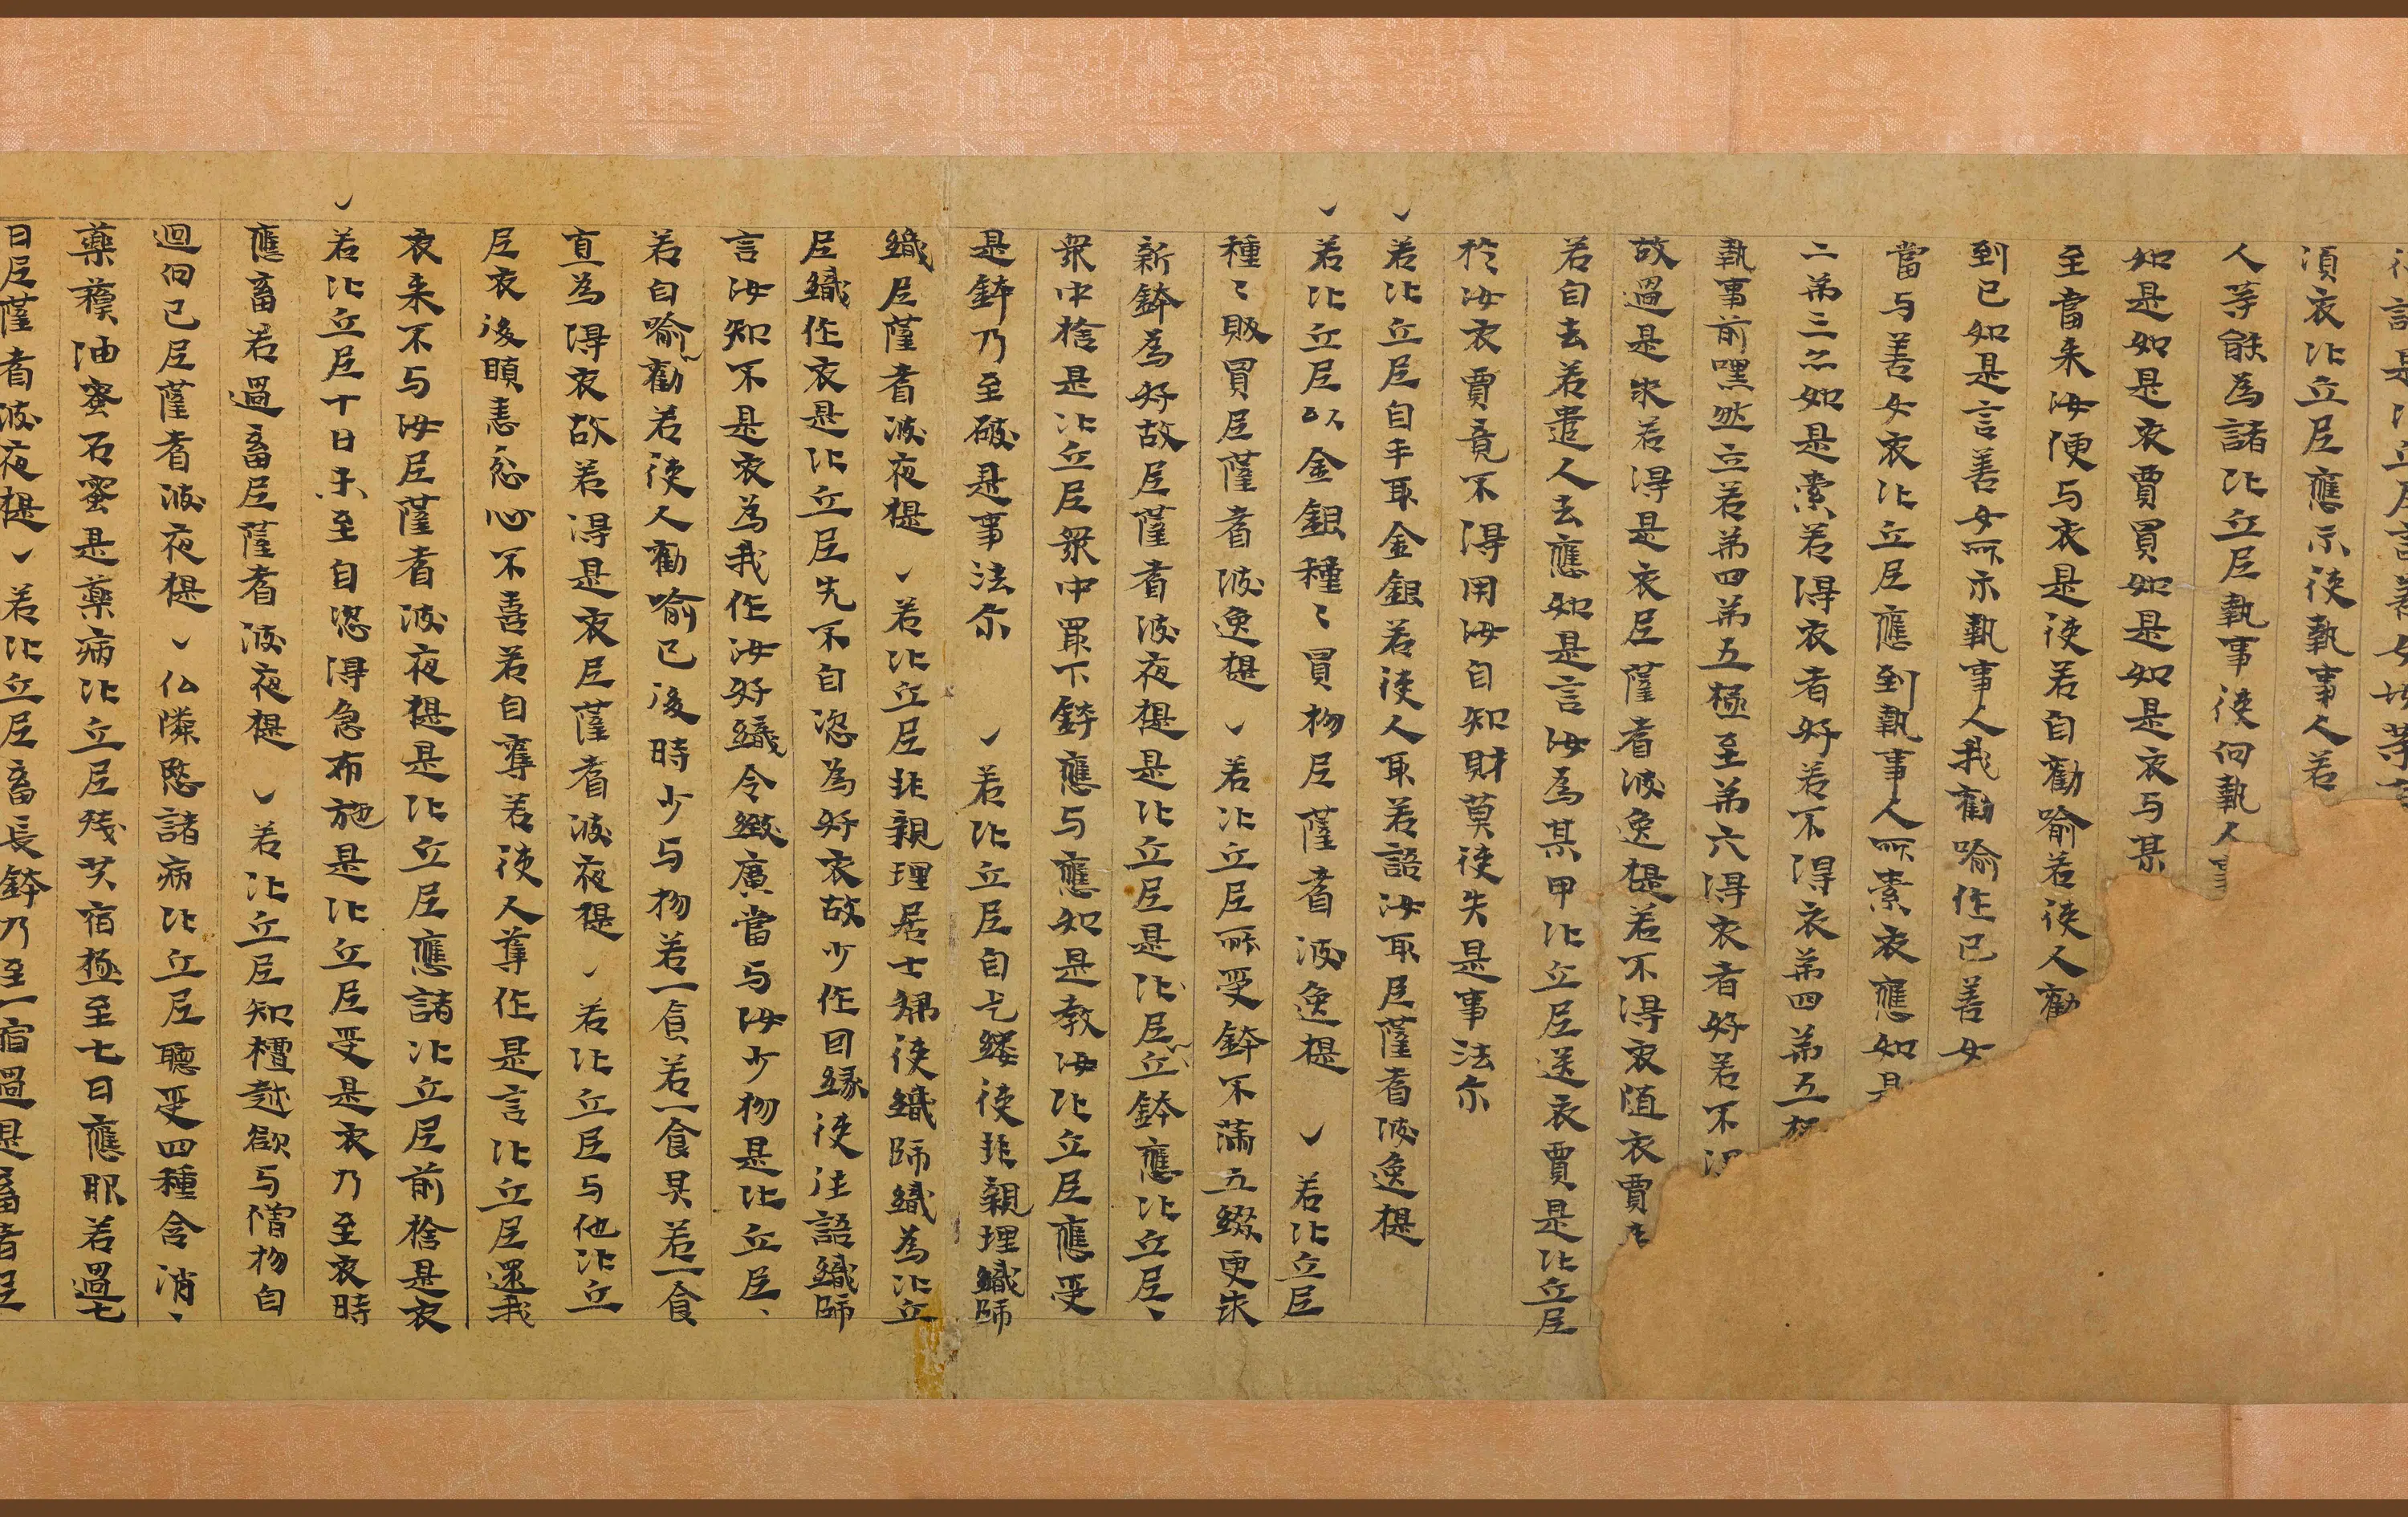 須衣比丘尼應示使執事人若
人等能為諸比丘尼執事使向執
如是如是衣賈買如是如是衣与某
至當来汝便与衣是使若自勸喻若使人勸
到已如是言善女所示執事人我勸喻作已善女
當与善女衣比丘尼應到執事人所索衣應如是
二苐三忽如是索若得衣者好若不得衣苐四苐五
執事前嘿然立若苐四苐五極至苐六得衣者好若不
故過是求若得是衣尼薩耆波逸提若不得衣随衣賈
若自去若遣人去應如是言汝為某甲比丘尼送衣賈是比丘尼
扵汝衣賈竟不得用汝自知財莫使失是事法尒
若比丘尼自手取金銀若使人取若語汝取尼薩耆波逸提
若比丘尼以金銀種〻買物尼薩耆波逸提 若比丘尼
種〻販買尼薩耆波逸提 若比丘尼所受鉢不滿五綴更求
新鉢為好故尼薩耆波夜提是比丘尼是比尼丘鉢應比丘尼、
衆中捨是比丘尼衆中冣下鉢應与應如是教汝比丘尼應受
是鉢乃至破是事法尒 若比丘尼自乞縷使非親理織師
織尼薩耆波夜提 若比丘尼非親理居士婦使織師織為比丘
尼織作衣是比丘尼先不自恣為好衣故少作因緣使往語織師
言汝知不是衣為我作汝好織令緻廣當与汝少物是比丘尼、
若自喻勸若使人勸喻已後時少与物若一食若一食具若一食
直為得衣故若得是衣尼薩耆波夜提 若比丘尼与他比丘
尼衣後瞋恚忿心不喜若自奪若使人奪作是言比丘尼還我
衣来不与汝尼薩耆波夜提是比丘尼應諸比丘尼前捨是衣
若比丘尼十日未至自恣得急布施是比丘尼受是衣乃至衣時
應畜若過畜尼薩耆波夜提 若比丘尼知檀越欲与僧物自
迴向已尼薩耆波夜提 仏憐愍諸病比丘尼聽受四種含消、
藥穬油蜜石蜜是藥病比丘尼殘共宿極至七日應服若過七
日尼薩耆波夜提 若比丘尼畜長鉢乃至一宿過是畜者尼